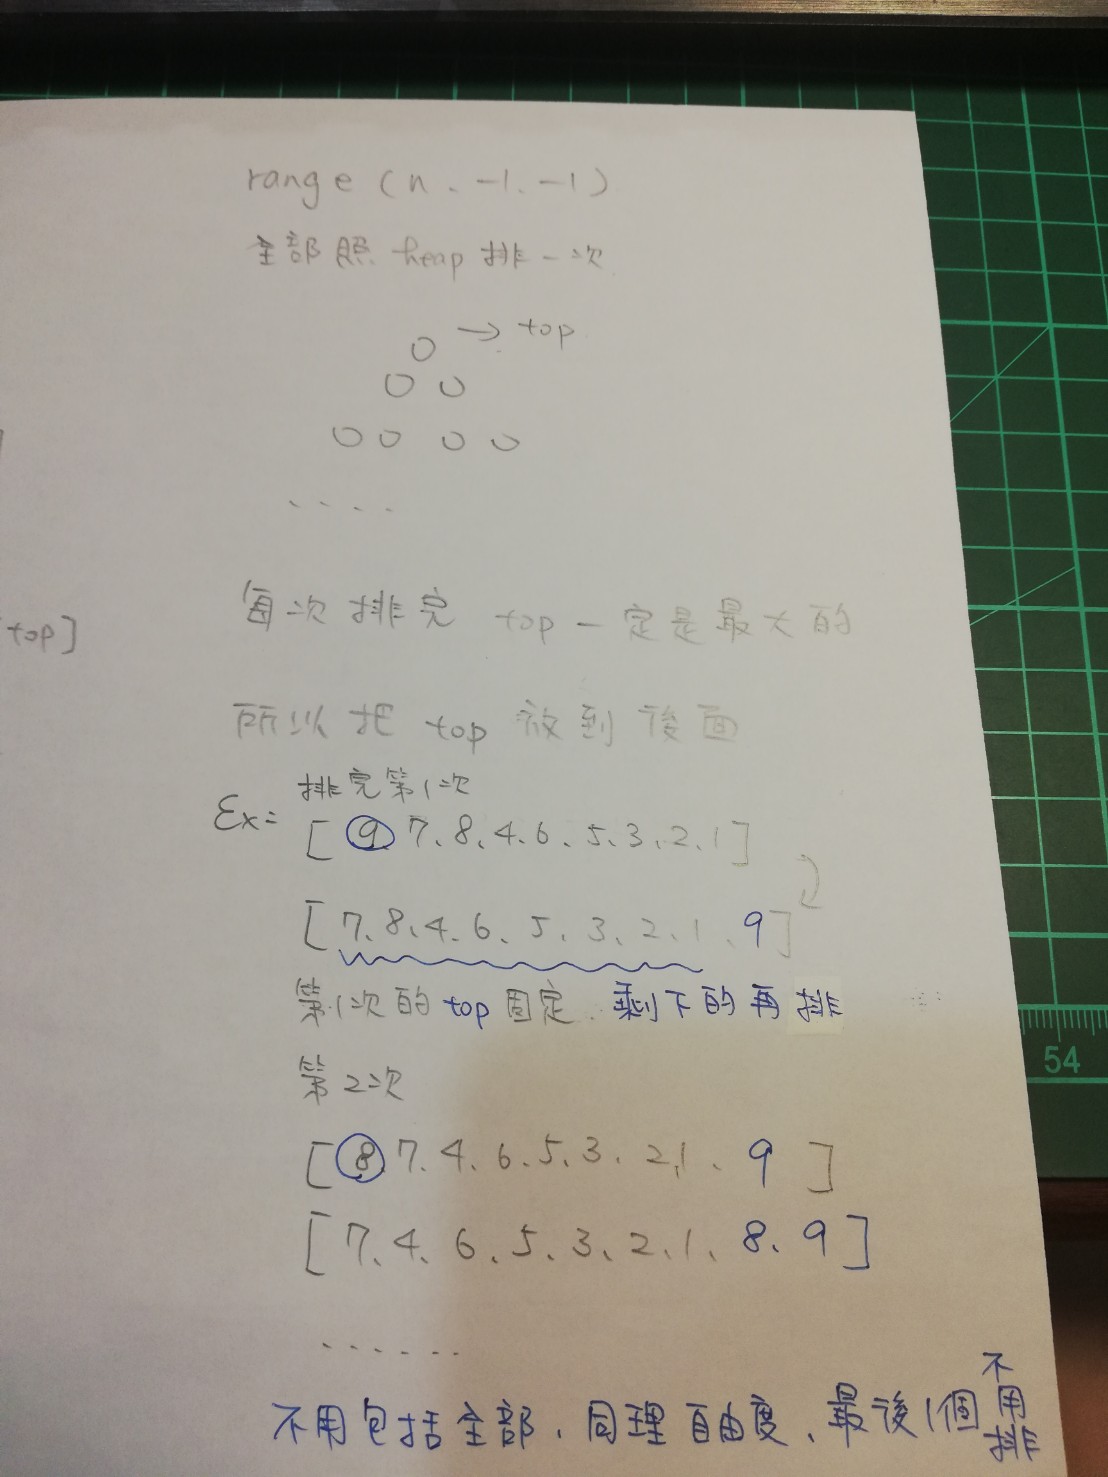 range (n、-1、-1)
全部照 heap 排一次
→ top
....
每次排完 top 一定是最大的
top]
所以把 top 放到後面
排完第1次
Ex:
[ 9 7、8、4、6、5、3、2、1 ]
[ 7、8、4、6、5、3、2、1、9 ]
第1次的 top 固定、剩下的再排
54
第2次
[ 8 7、4、6、5、3、2、1、9 ]
[ 7、4、6、5、3、2、1、8、9 ]
......
不用包括全部,同理自由度、最後1個不用排